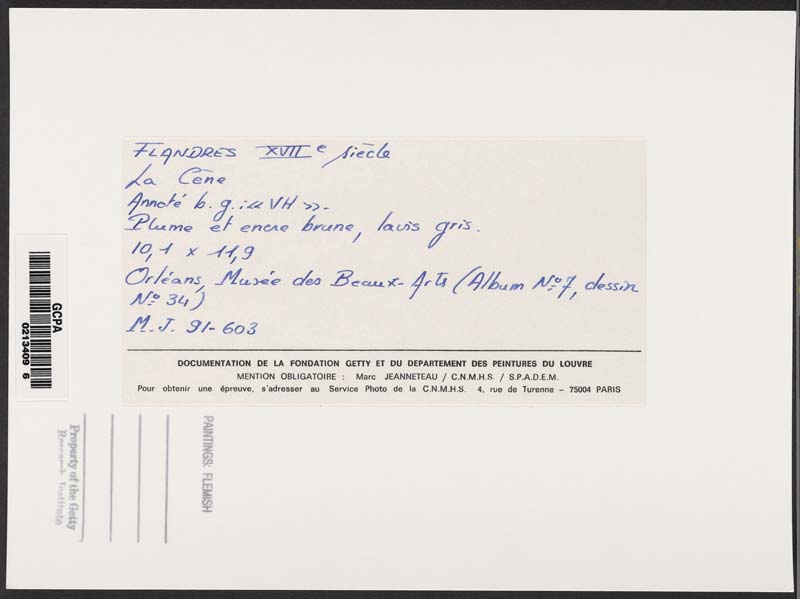 FLANDRES XVIIe siècle
La Cène
Annoté b. g. : « VH ».
Plume et encre brune, lavis gris.
10,1 x 11,9
Orléans, Musée des Beaux-Arts (Album Nº7, dessin
Nº 34)
M.J. 91-603
DOCUMENTATION DE LA FONDATION GETTY ET DU DEPARTEMENT DES PEINTURES DU LOUVRE
MENTION OBLIGATOIRE : Marc JEANNETEAU / C.N.M.H.S. / S.P.A.D.E.M.
Pour obtenir une épreuve, s'adresser au Service Photo de la C.N.M.H.S. 4, rue de Turenne – 75004 PARIS
GCPA
0213409 6
Property of the Getty
Research Institute
PAINTINGS: FLEMISH